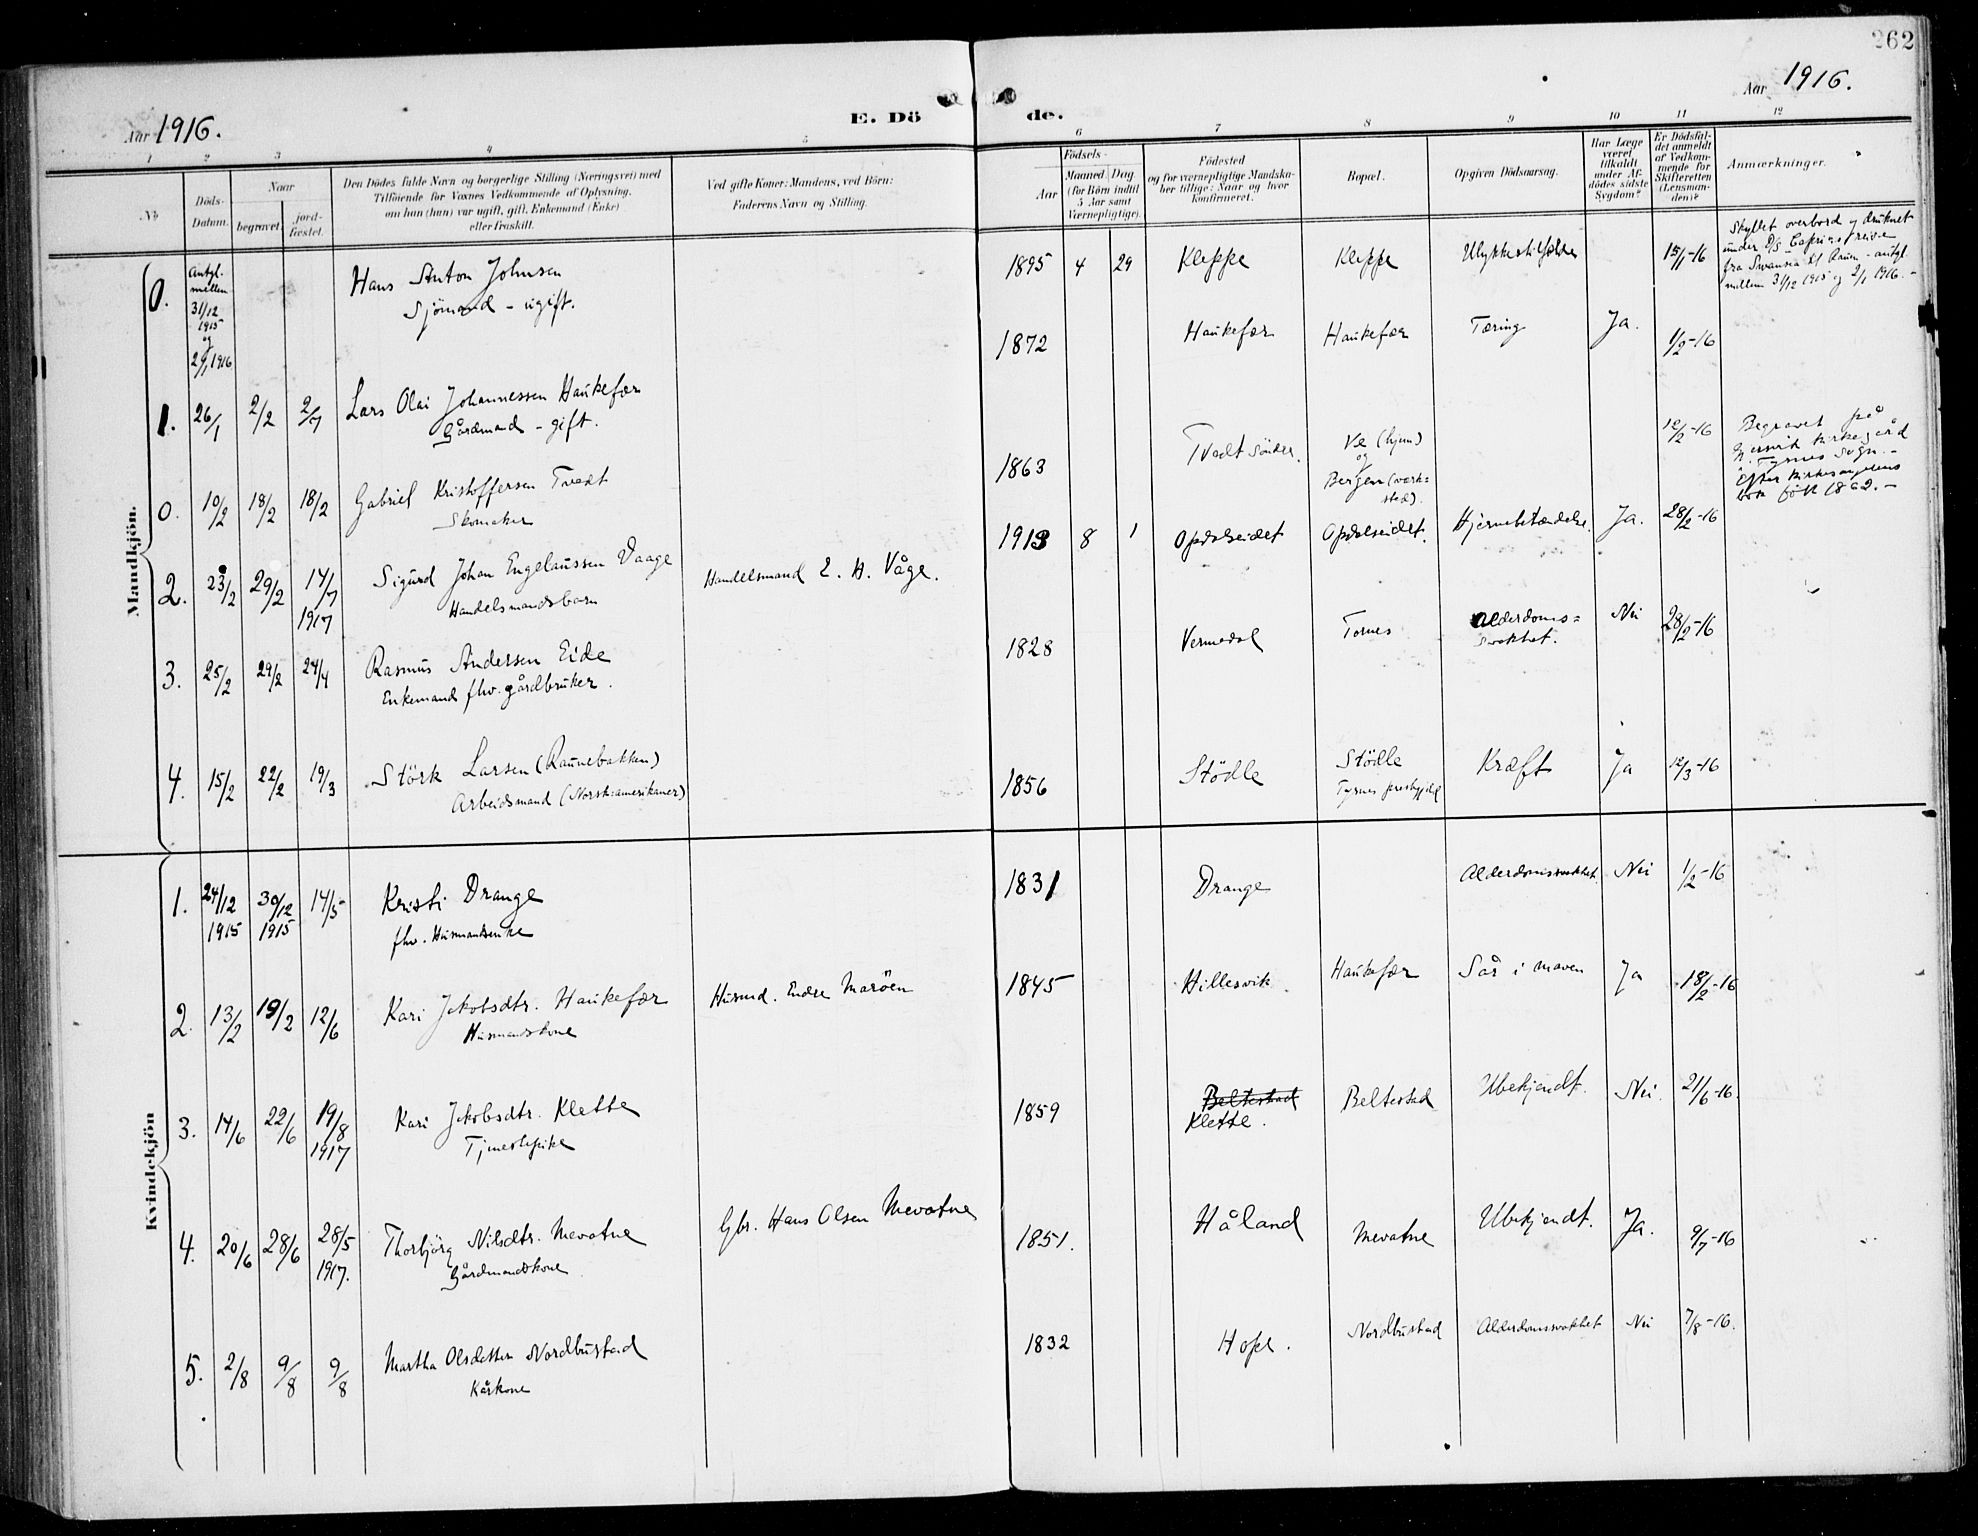 262
Aar 1916.
E. Dö
de.
Aar 1916.
1 2 3 4 5 6 7 8 9 10 11 12
No.
Döds-
Datum.
Naar
begravet.
jord-
fæstet.
Den Dödes fulde Navn og borgerlige Stilling (Næringsvei) med
Tilföiende for Voxnes Vedkommende af Oplysning,
om han (hun) var ugift, gift, Enkemand (Enke)
eller fraskilt.
Ved gifte Koner: Mandens, ved Börn:
Faderens Navn og Stilling.
Födsels-
Aar
Maaned Dag
(for Börn indtil
5 Aar samt
Værnepligtige).
Födested
og for værnepligtige Mandska-
ber tillige: Naar og hvor
konfirmeret.
Bopæl.
Opgiven Dödsaarsag.
Har Læge
været
tilkaldt
under Af-
dödes sidste
Sygdom?
Er Dödsfal-
det anmeldt
af Vedkom-
mende for
Skifteretten
(Lensman-
den)?
Anmærkninger.
Mandkjön.
0.
Antgl.
mellem
31/12
1915
og
2/1 1916
Hans Anton Johnsen
Sjömand - ugift.
1895 4 29 Kleppe Kleppe Ulykkestilfælde 15/1-16
Skyllet overbord og druknet
under D/S Caprino's reise
fra Swansea til Rouen - antgl.
mellem 31/12 1915 og 2/1 1916. -
1. 26/1 2/2 2/7 Lars Olai Johannessen Haukefær
Gårdmand - gift.
1872 Haukefær Haukefær Tæring Ja. 1/2-16
0. 10/2 18/2 18/2 Gabriel Kristoffersen Tvedt
Skomaker
1863 Tvedt söndre. Ve (hjem)
og
Bergen (verk-
sted).
12/2-16
Begravet på
kirkegård
i Tysnes sogn. -
Efter kirkesangerens
bok född 1862. -
2. 23/2 29/2 14/7
1917
Sigurd Johan Engelaussen Vaage
Handelsmandsbarn
Handelsmand E. H. Våge.
1913 8 1 Opdalseidet Opdalseidet. Hjernebetændelse. Ja. 28/2-16
3. 25/2 29/2 24/4 Rasmus Andersen Eide
Enkemand fhv. gårdbruker.
1828 Vermedal Tornes Alderdoms=
svakhet. Nei 28/2-16
4. 15/2 22/2 19/3 Störk Larsen (Raunebakken)
Arbeidsmand (Norsk-amerikaner)
1856 Stödle Stödle
Tysnes prestgjeld
Kræft Ja 12/3-16
Kvindekjön
1. 24/12
1915
30/12
1915
14/5 Kristi Drange
fhv. Husmandsenke
1831 Drange Alderdomssvakhet. Nei 1/2-16
2. 13/2 19/2 12/6 Kari Jakobsdtr. Haukefær
Husmandskone
Husmd. Endre Maröen
1845 Hillesvik Haukefær Sår i maven Ja 18/2-16
3. 14/6 22/6 19/8
1917
Kari Jakobsdtr. Klette
Tjenestepike
1859 Beltestad
Klette.
Beltestad Ubekjendt. Nei. 21/6-16.
4. 20/6 28/6 28/5
1917.
Thorbjörg Nilsdtr. Mevatne
Gårdmandskone
Gbr. Hans Olsen Mevatne
1851. Håland Mevatne Ubekjendt. Ja. 9/7-16
5. 2/8 9/8 9/8 Martha Olsdatter Nordbustad
Kårkone
1832 Hope. Nordbustad Alderdomssvakhet Nei 7/8-16.